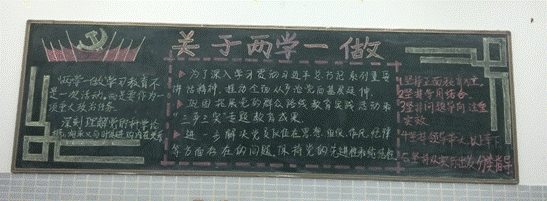 关于两学一做
"两学一做"学习教育不
是一次活动，而是要作为一
项重大政治任务
深刻理解党的科学论
为了深入学习贯彻习近平总书记系列重要
讲话精神，推动全面从严治党向基层延伸
巩固拓展党的群众路线教育实践活动和
"三严三实"专题教育成果
进一步解决党员队伍在思想、组织、作风、纪律
等方面存在的问题，保持党的先进性和纯洁性
1坚持正面教育为主
2坚持学用结合
3坚持问题导向注重
实效
4坚持领导带头以上率下
5坚持从实际出发分类指导